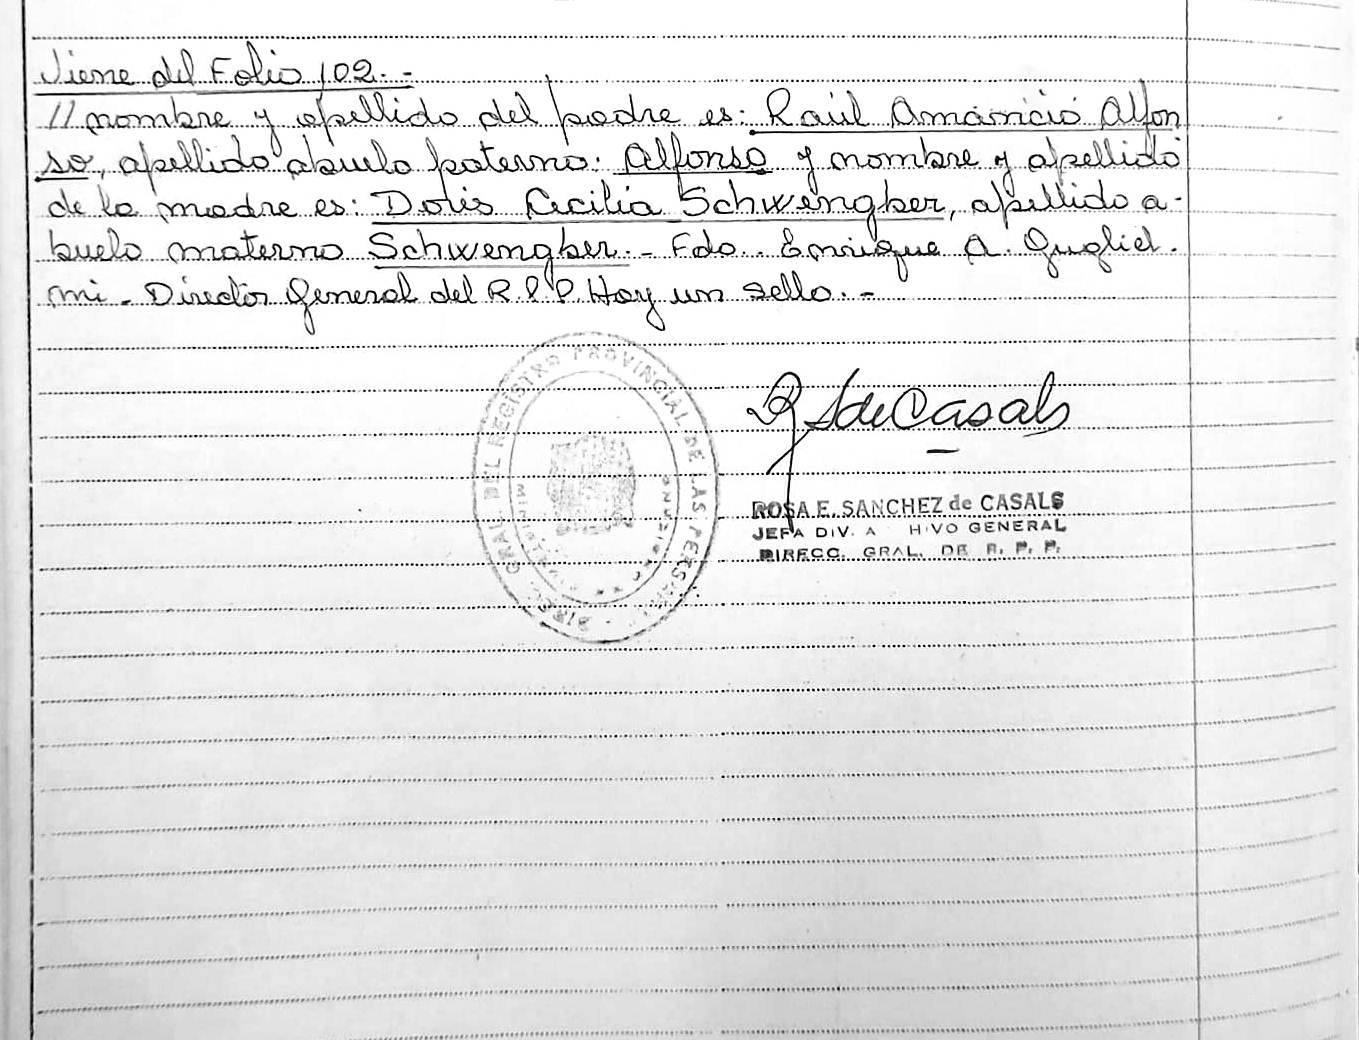 Viene del Folio 102.-
// nombre y apellido del padre es: Raúl Amancio Alfon
so, apellido abuelo paterno: Alfonso y nombre y apellido
de la madre es: Doris Cecilia Schwengber, apellido a-
buelo materno Schwengber.- Fdo. Enrique A. Gugliel-
mi - Director General del R.P.P. Hay un sello.-
DIREC. GRAL. DEL REGISTRO PROVINCIAL DE LAS PERSONAS
R S de Casals
ROSA E. SANCHEZ de CASALS
JEFA DIV. A HIVO GENERAL
DIRECC. GRAL. DE R. P. P.